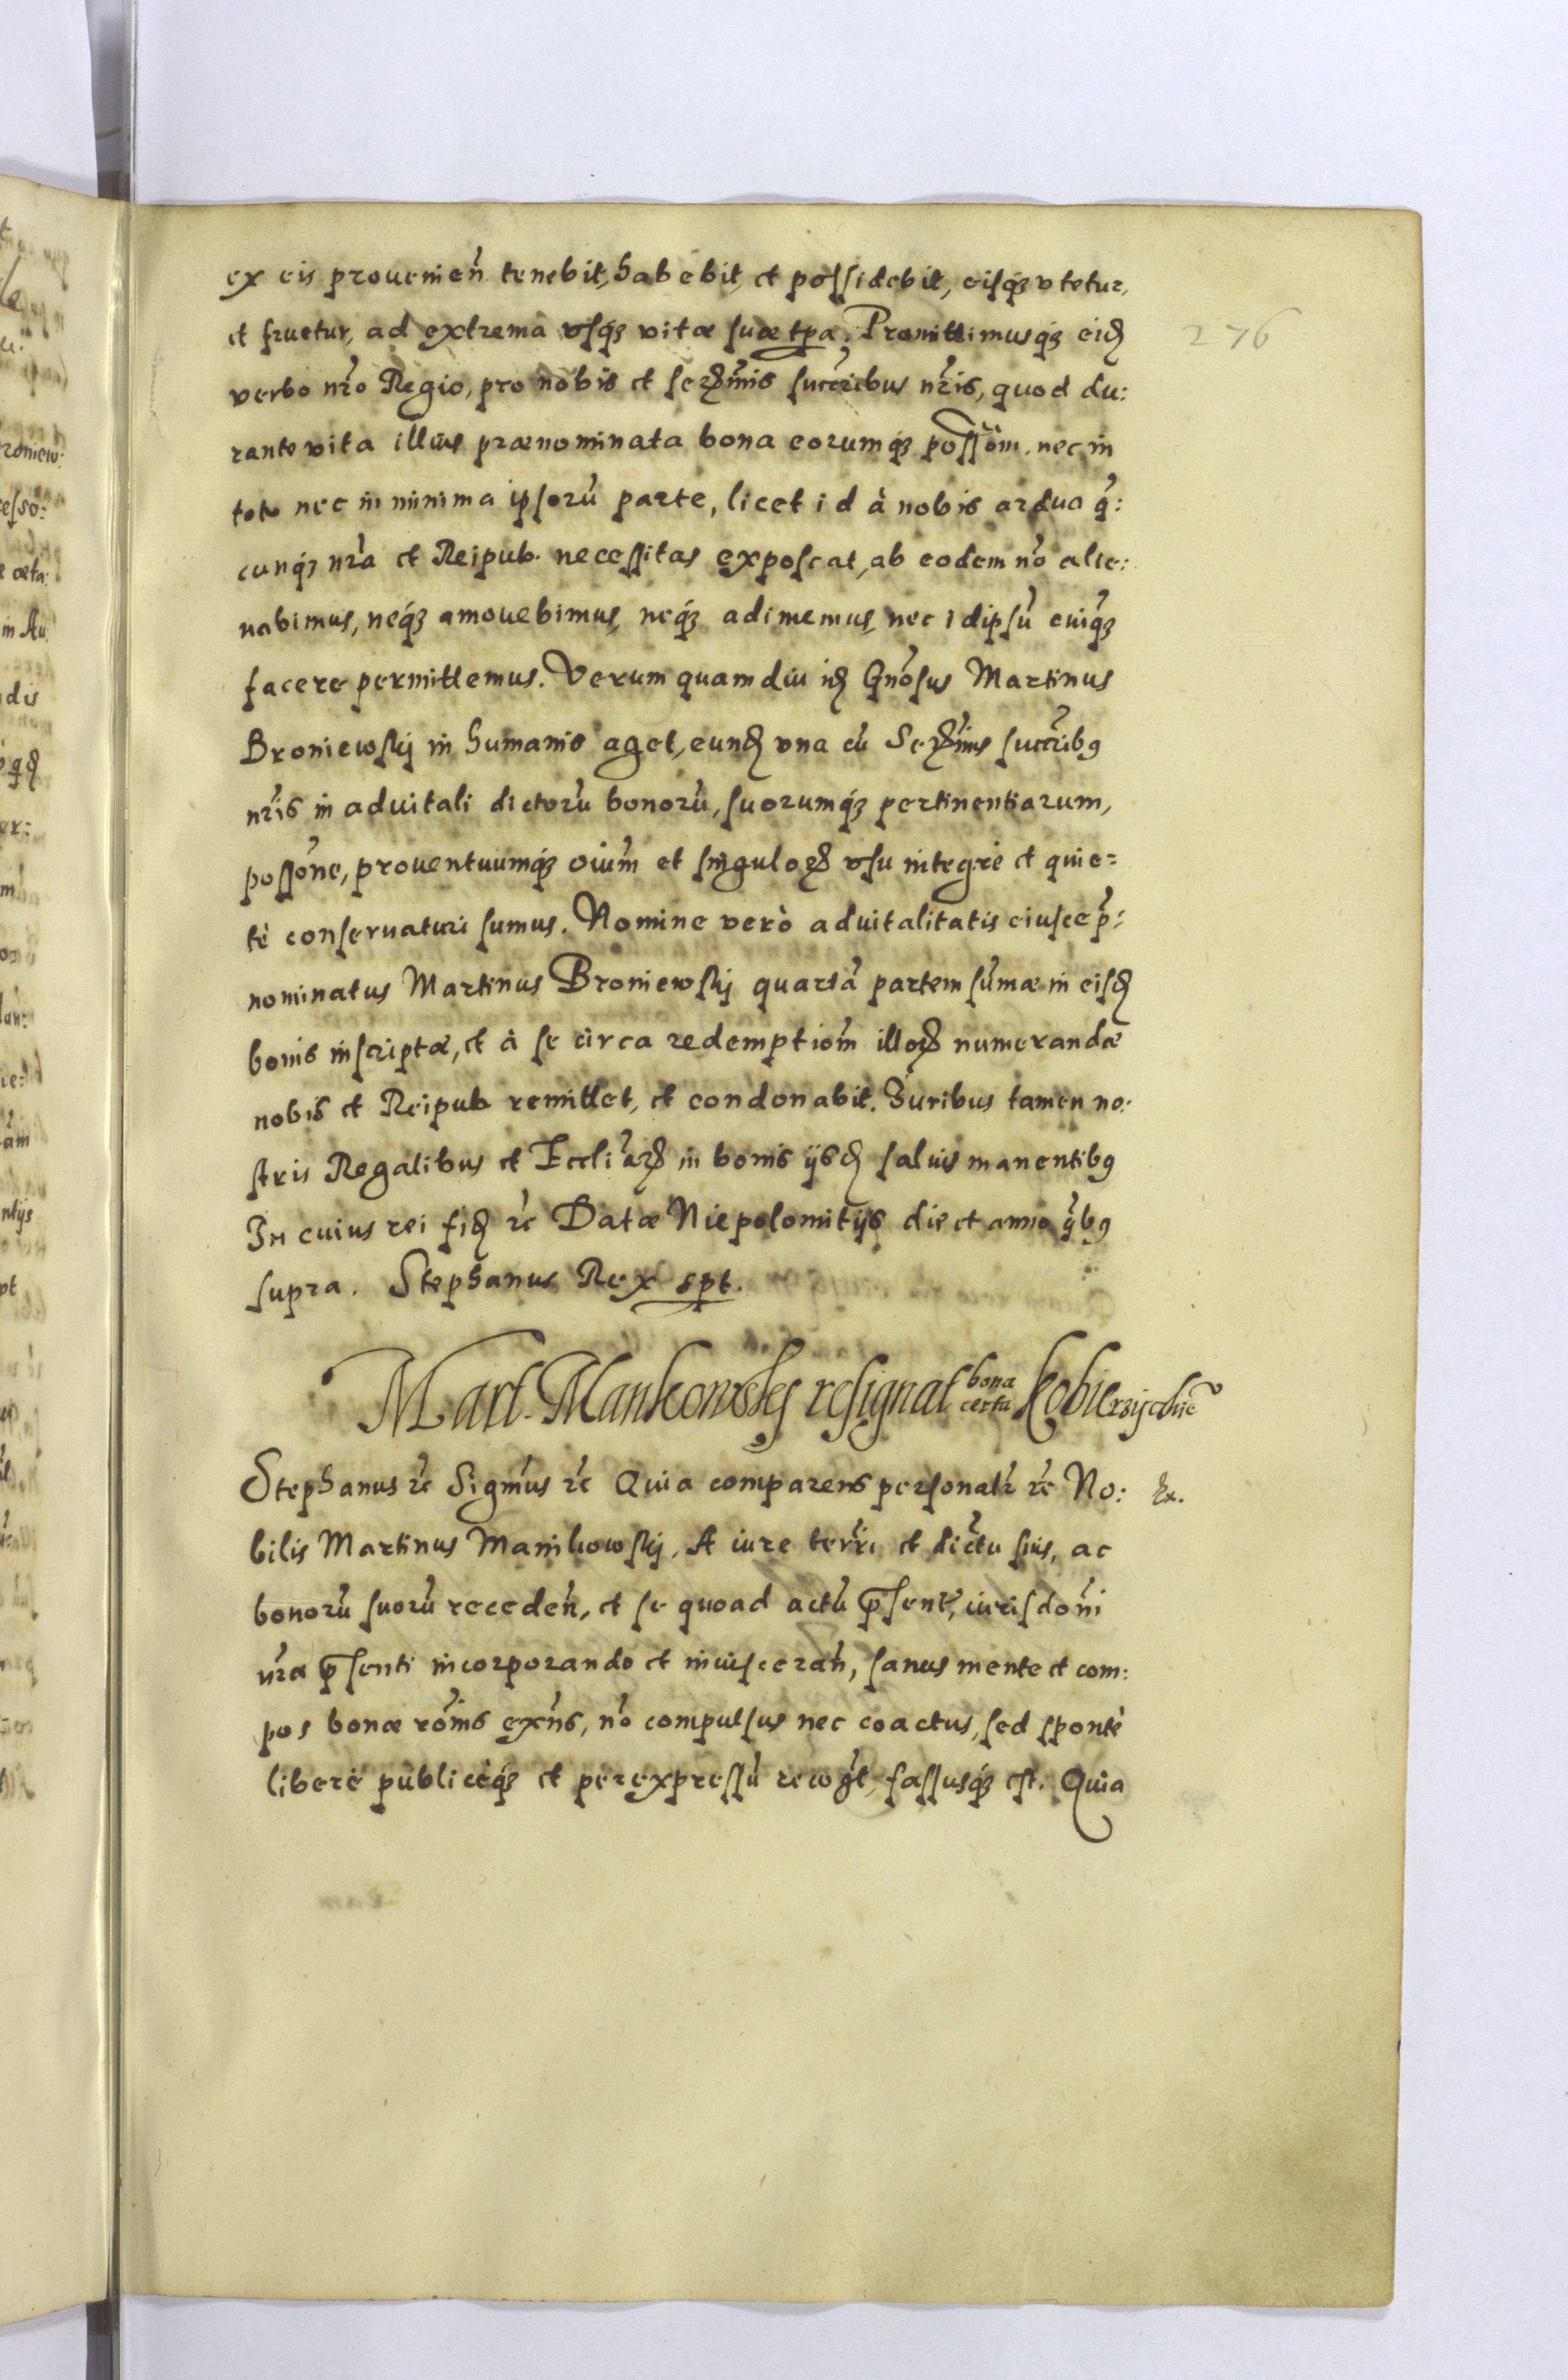 ex eis prouenień tenebit, habebit, et possidebit, eisq́ꝫ vtetur,
et fruetur, ad extrema vsq́ꝫ vitæ suæ tp̃a. Promittimusq́ꝫ eidꝫ
276
verbo nr̃o Regio, pro nobis et serꝫm̃is succr̃ibus nr̃is, quod du:
rante vita illius prænominata bona eorumq́ꝫ possõm. nec in
toto nec in minima ipsorũ parte, licet id à nobis ardua q̃:
cunq́ꝫ nr̃a et Reipub. necessitas exposcat, ab eodem nõ alie:
nabimus, neq́ꝫ amouebimus, neq́ꝫ adimemus, nec idipsũ cuiq́ꝫ
facere permittemus. Verum quamdiu idꝫ Gñosus Martinus
Broniewskj in humanis aget, eundꝫ vna cũ Serꝫm̃is succr̃ibꝰ
nr̃is in aduitali dictorũ bonorũ, suorumq́ꝫ pertinentiarum,
possõne, prouentuumq́ꝫ oĩum et singuloꝝ vsu integrè et quie=
tè conseruaturi sumus. Nomine verò aduitalitatis eiusce p̃:
nominatus Martinus Broniewskj quartã partem sũmæ in eisdꝫ
bonis inscriptæ, et à se circa redemptiom̃ illoꝝ numerandæ
nobis et Reipub remittet, et condonabit. Juribus tamen no:
stris Regalibus et Eccliãꝝ in bonis ijsdꝫ saluis manentibꝰ
In cuius rei fidꝫ ꝛc̃ Datæ Niepolomitijs die et anno q̃bꝰ
supra. Stephanus Rex spt.
Mart. Mankowskj resignat bona certa Kobierzijcskie
Stephanus ꝛc̃ Sigm̃us ꝛc̃ Quia comparens personalr̃ ꝛc̃ No:
bilis Martinus Manikowskj, A iure terr̃i et dictũ suis, ac
bonorũ suorũ receden̄, et se quoad actũ p̃sent̃, iurisdoñi
nr̃æ p̃senti incorporando et inuisceran̄, sanus mente et com:
pos bonæ rõnis exñs, nõ compulsus nec coactus, sed spontè
liberè publicèq́ꝫ et per expressũ recog̃t, fassusq́ꝫ est. Quia